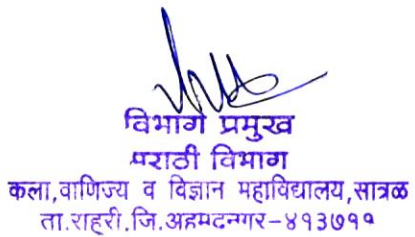 विभाग प्रमुख
मराठी विभाग
कला,वाणिज्य व विज्ञान महाविद्यालय,सात्रळ
ता.राहूरी.जि.अहमदनगर-४१३७११